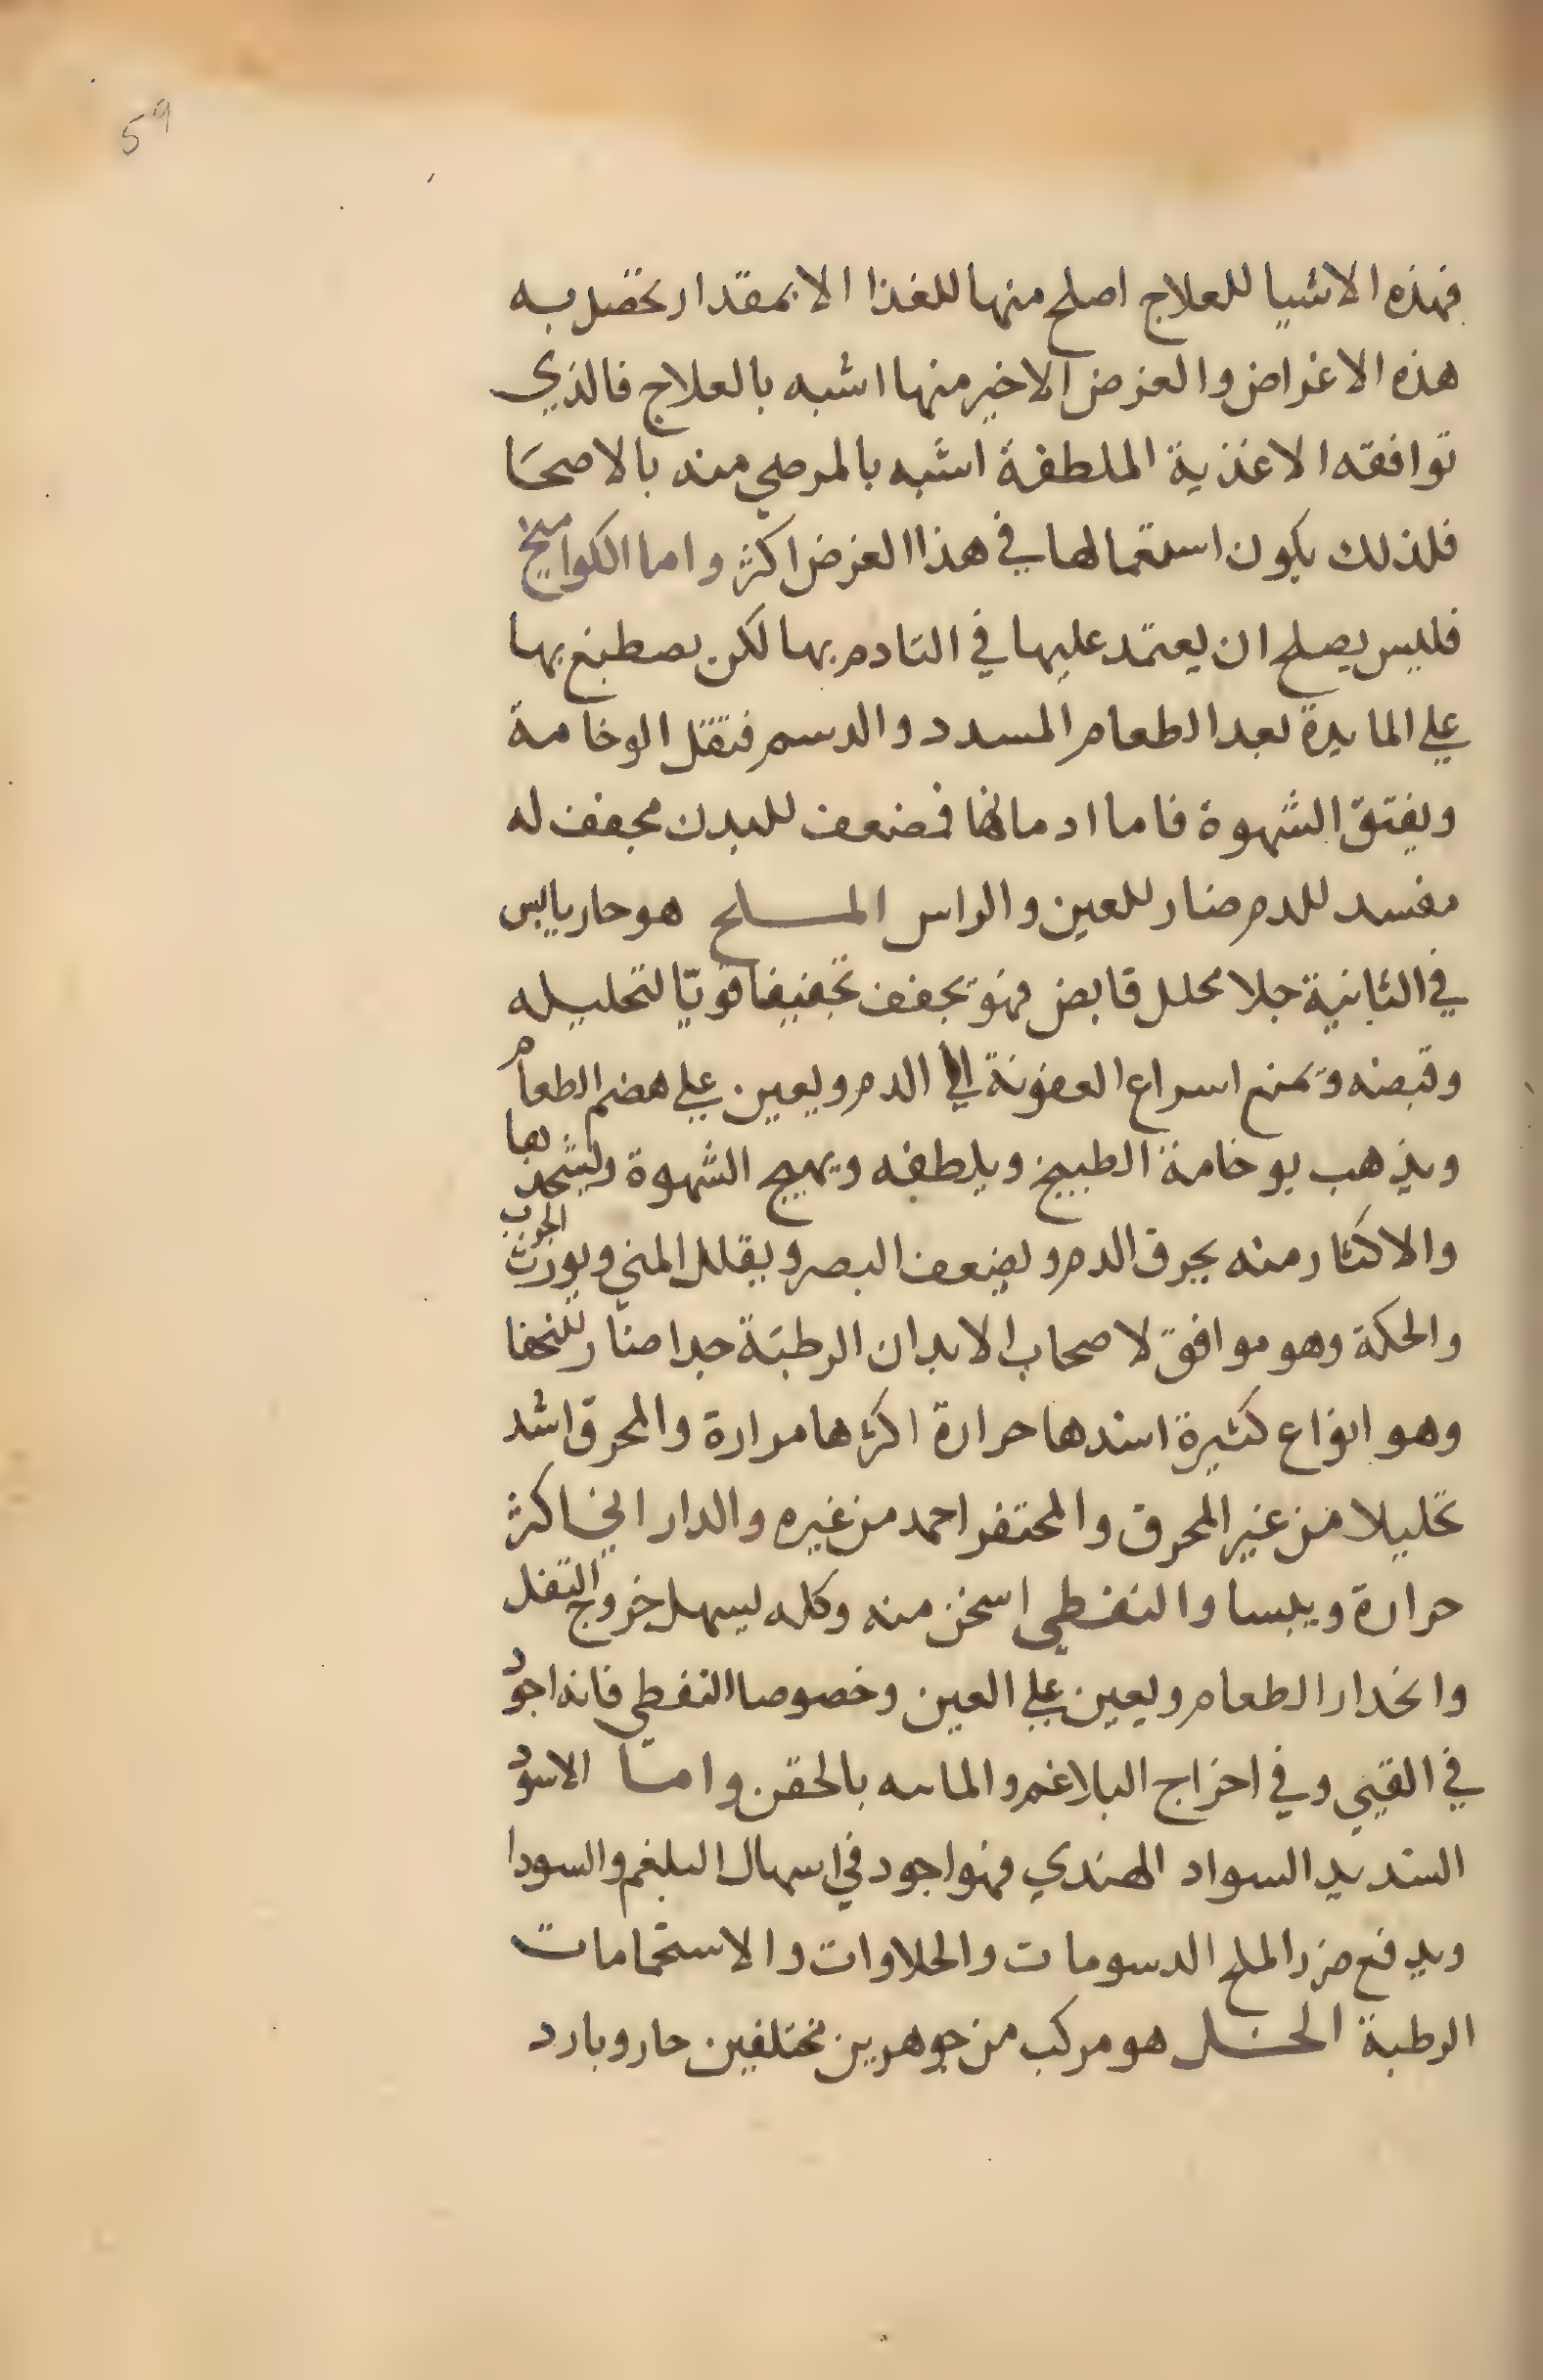 59
فهذه الاشيا للعلاج اصلح منها للغذا الا بمقدار تحصل به
هذه الاغراض والغرض الاخير منها اشبه بالعلاج فالذي
توافقه الاغذية الملطفة اشبه بالمرضي منه بالاصحا
فلذلك يكون استعمالها في هذا الغرض اكثر واما الكواميخ
فليس يصلح ان يعتمد عليها في التادم بها لكن يصطبغ بها
علي المايدة بعد الطعام المسدد والدسم فتقل الوخامة
ويفتق الشهوة فاما ادمانها فمضعف للبدن مجفف له
مفسد للدم ضار للعين والراس الملح هو حار يابس
في الثانية جلا محلل قابض فهو يجفف تجفيفا قويا لتحليله
وقبضه ويمنع اسراع العفونة الي الدم ويعين علي هضم الطعام
ويذهب بوخامة الطبيخ ويلطفه ويهيج الشهوة ويشحذها
والاكثار منه يحرق الدم ويضعف البصر ويقلل المني ويورث الجرب
والحكة وهو موافق لاصحاب الابدان الرطبة جدا ضار للنحفا
وهو انواع كثيرة اشدها حرارة اكثرها مرارة والمحرق اشد
تحليلا من غير المحرق والمحتفر احمد من غيره والداراني اكثر
حرارة ويبسا والنفطي اسخن منه وكله يسهل خروج الثفل
وانحدار الطعام ويعين علي العين وخصوصا النفطي فانه اجود
في القيي وفي اخراج البلاغم والماىىه بالحقن واما الاسود
الشديد السواد الهندي فهو اجود في اسهال البلغم والسودا
ويدفع ضرر الملح الدسومات والحلاوات والاستحمامات
الرطبة الخل هو مركب من جوهرين مختلفين حار وبارد